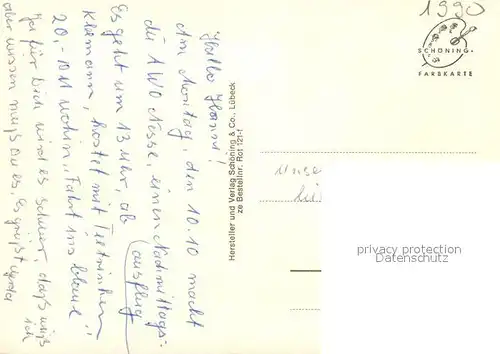 1990
SCHÖNING·
FARBKARTE
Hallo Hanni!
Am Montag, den 10.10 macht
die AWO Nesse, einen Nachmittags-
ausflug
Es geht um 13 Uhr, ab
Kleemann, kostet mit Teetrinken
20,- DM wohin „Fahrt ins blaue"
Ja für Dich wird es schwer, daß weiß ich
aber wissen mußt du es. Es grüßt
Hersteller und Verlag Schöning & Co., Lübeck
ze Bestellnr. Rot 121-f
privacy protection
Datenschutz